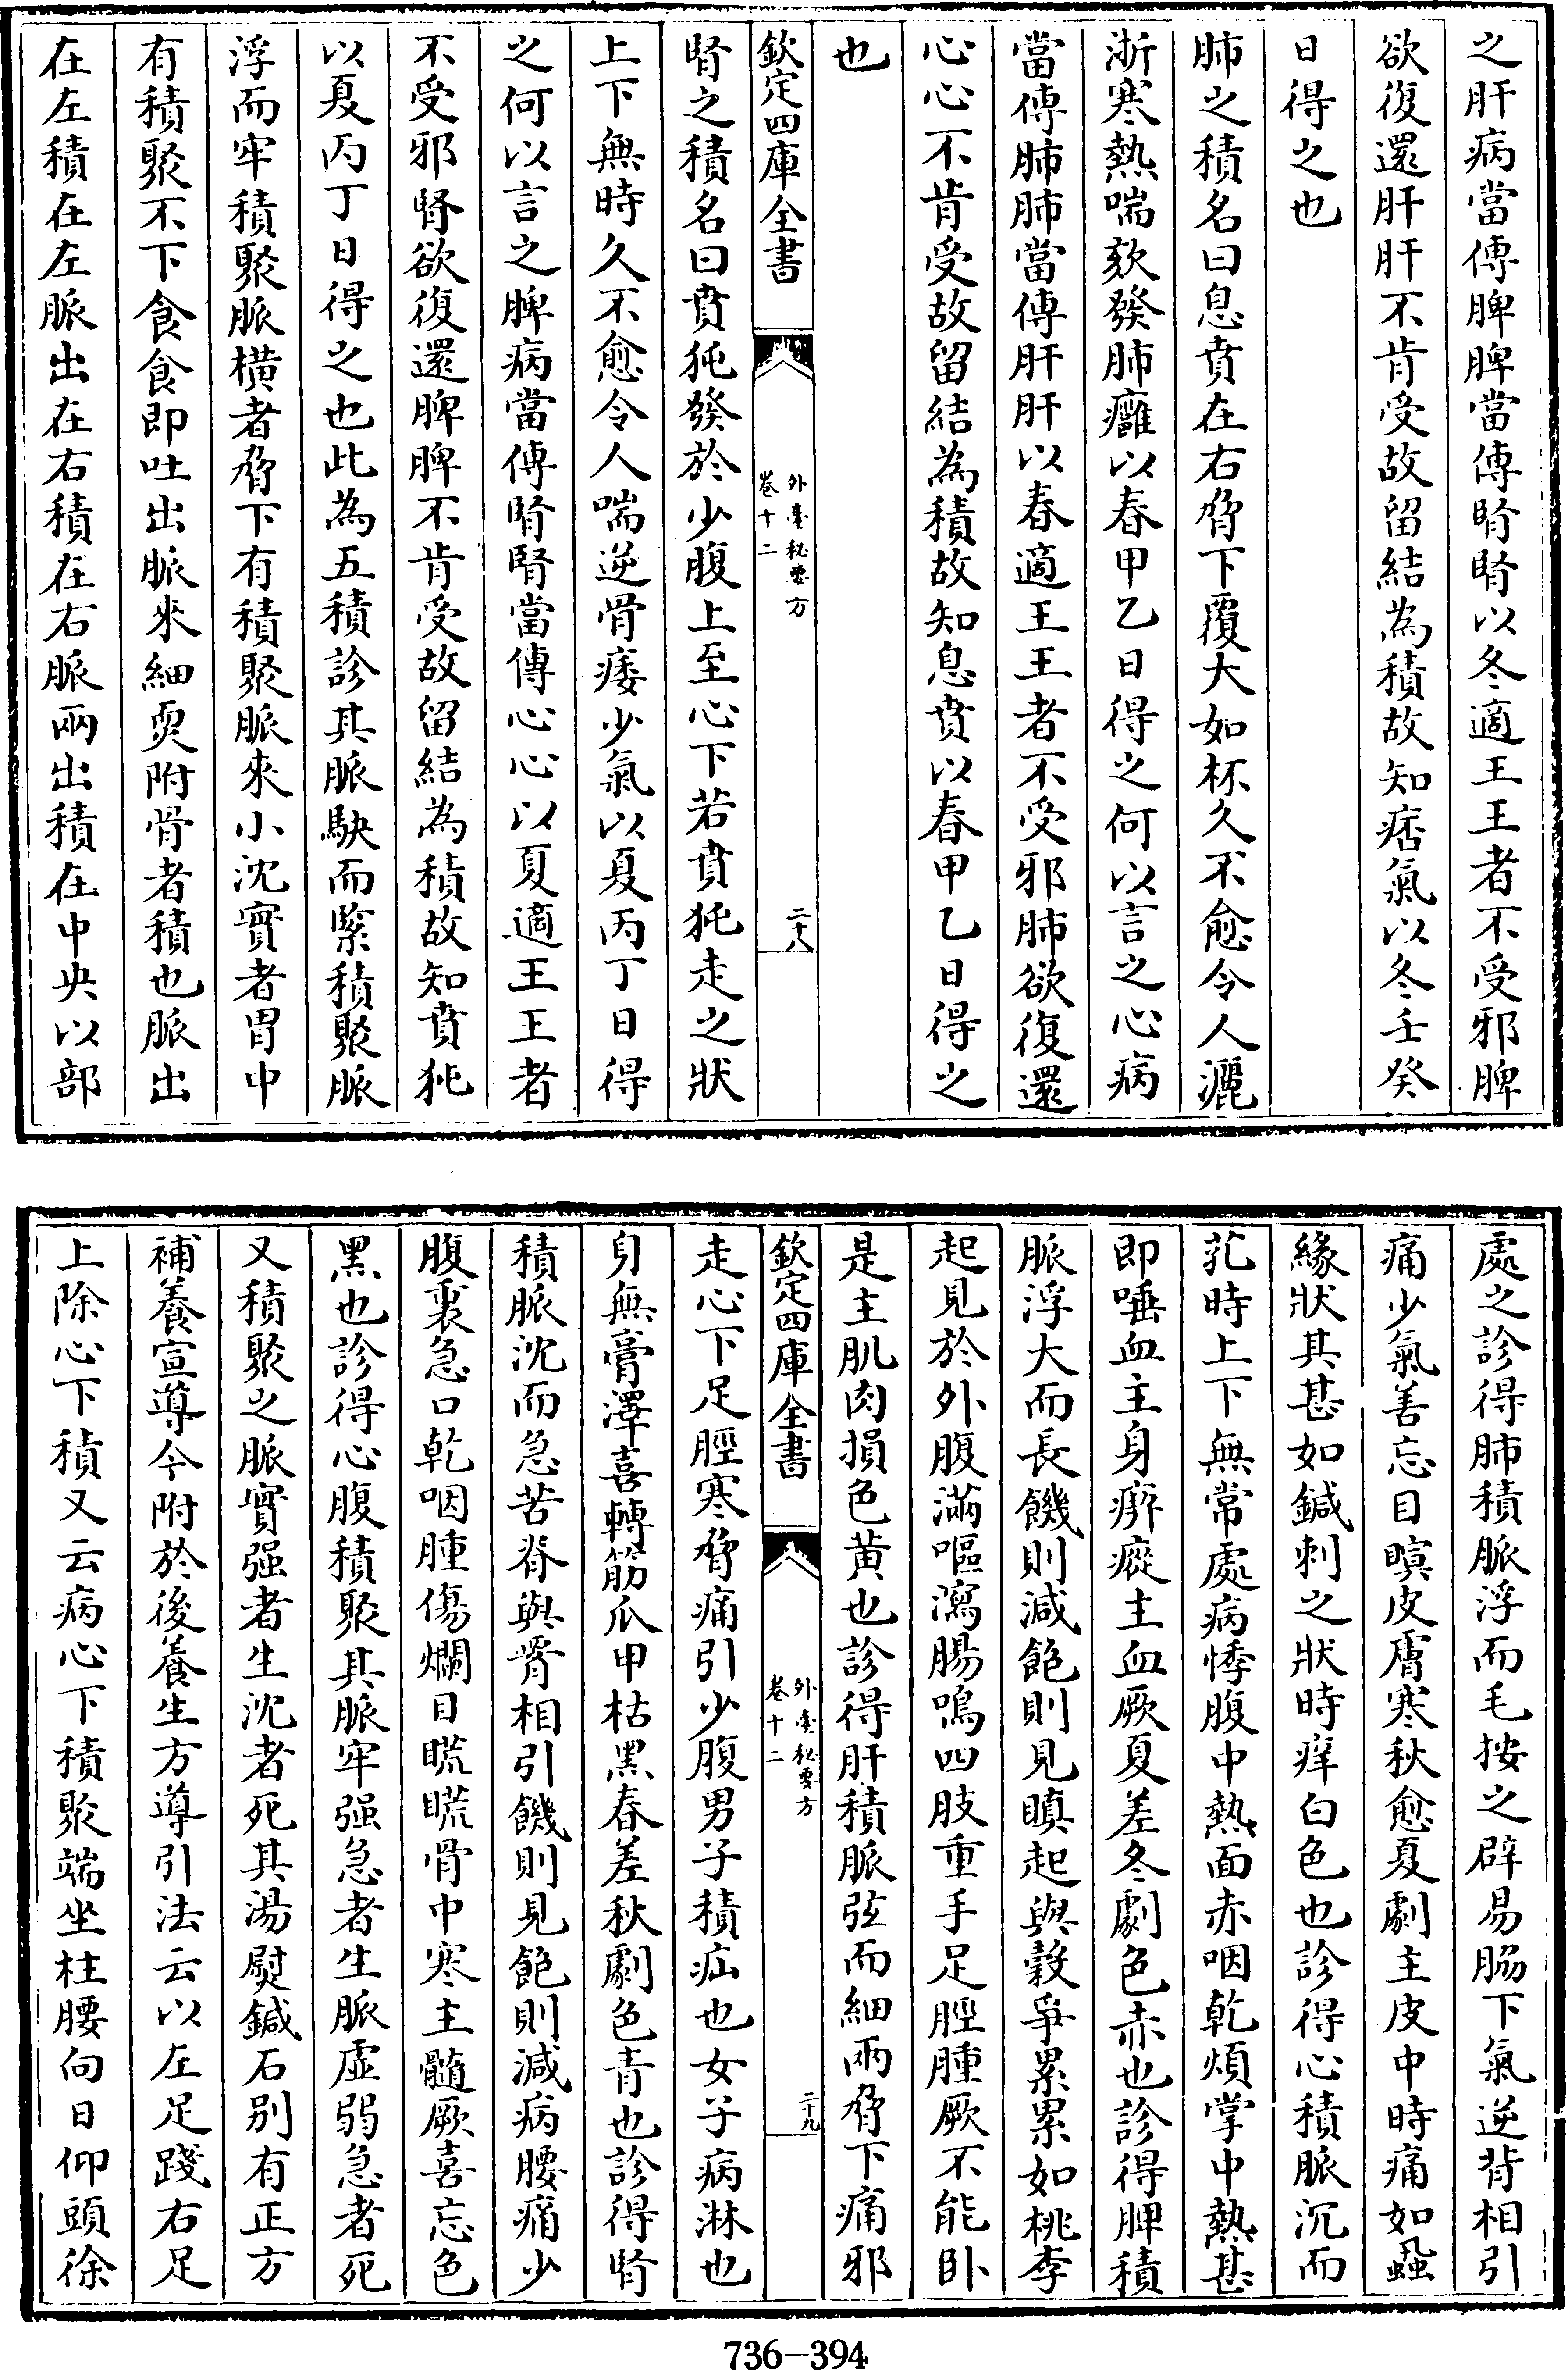 之肝病當傳脾脾當傳腎腎以冬適王王者不受邪脾
欲復還肝肝不肯受故留結為積故知痞氣以冬壬癸
日得之也
肺之積名曰息賁在右脅下覆大如杯久不愈令人灑
淅寒熱喘欬發肺癰以春甲乙日得之何以言之心病
當傳肺肺當傳肝肝以春適王王者不受邪肺欲復還
心心不肯受故留結為積故知息賁以春甲乙日得之
也
欽定四庫全書
外臺秘要方
卷十二
二十八
腎之積名曰賁㹠發於少腹上至心下若賁㹠走之狀
上下無時久不愈令人喘逆骨痿少氣以夏丙丁日得
之何以言之脾病當傳腎腎當傳心心以夏適王王者
不受邪腎欲復還脾脾不肯受故留結為積故知賁㹠
以夏丙丁日得之也此為五積診其脈駃而緊積聚脈
浮而牢積聚脈橫者脅下有積聚脈來小沈實者胃中
有積聚不下食食即吐出脈來細耎附骨者積也脈出
在左積在左脈出在右積在右脈兩出積在中央以部
處之診得肺積脈浮而毛按之辟易脇下氣逆背相引
痛少氣善忘目瞑皮膚寒秋愈夏劇主皮中時痛如蝨
緣狀其甚如鍼刺之狀時痒白色也診得心積脈沉而
芤時上下無常處病悸腹中熱面赤咽乾煩掌中熱甚
即唾血主身瘈瘲主血厥夏差冬劇色赤也診得脾積
脈浮大而長饑則減飽則見瞋起與穀爭累累如桃李
起見於外腹滿嘔瀉腸鳴四肢重手足脛腫厥不能臥
是主肌肉損色黃也診得肝積脈弦而細兩脅下痛邪
欽定四庫全書
外臺秘要方
卷十二
二十九
走心下足脛寒脅痛引少腹男子積疝也女子病淋也
身無膏澤喜轉筋爪甲枯黑春差秋劇色青也診得腎
積脈沈而急苦脊與膂相引饑則見飽則減病腰痛少
腹裏急口乾咽腫傷爛目䀮䀮骨中寒主髓厥喜忘色
黑也診得心腹積聚其脈牢强急者生脈虛弱急者死
又積聚之脈實强者生沈者死其湯熨鍼石别有正方
補養宣導今附於後養生方導引法云以左足踐右足
上除心下積又云病心下積聚端坐柱腰向日仰頭徐
736-394